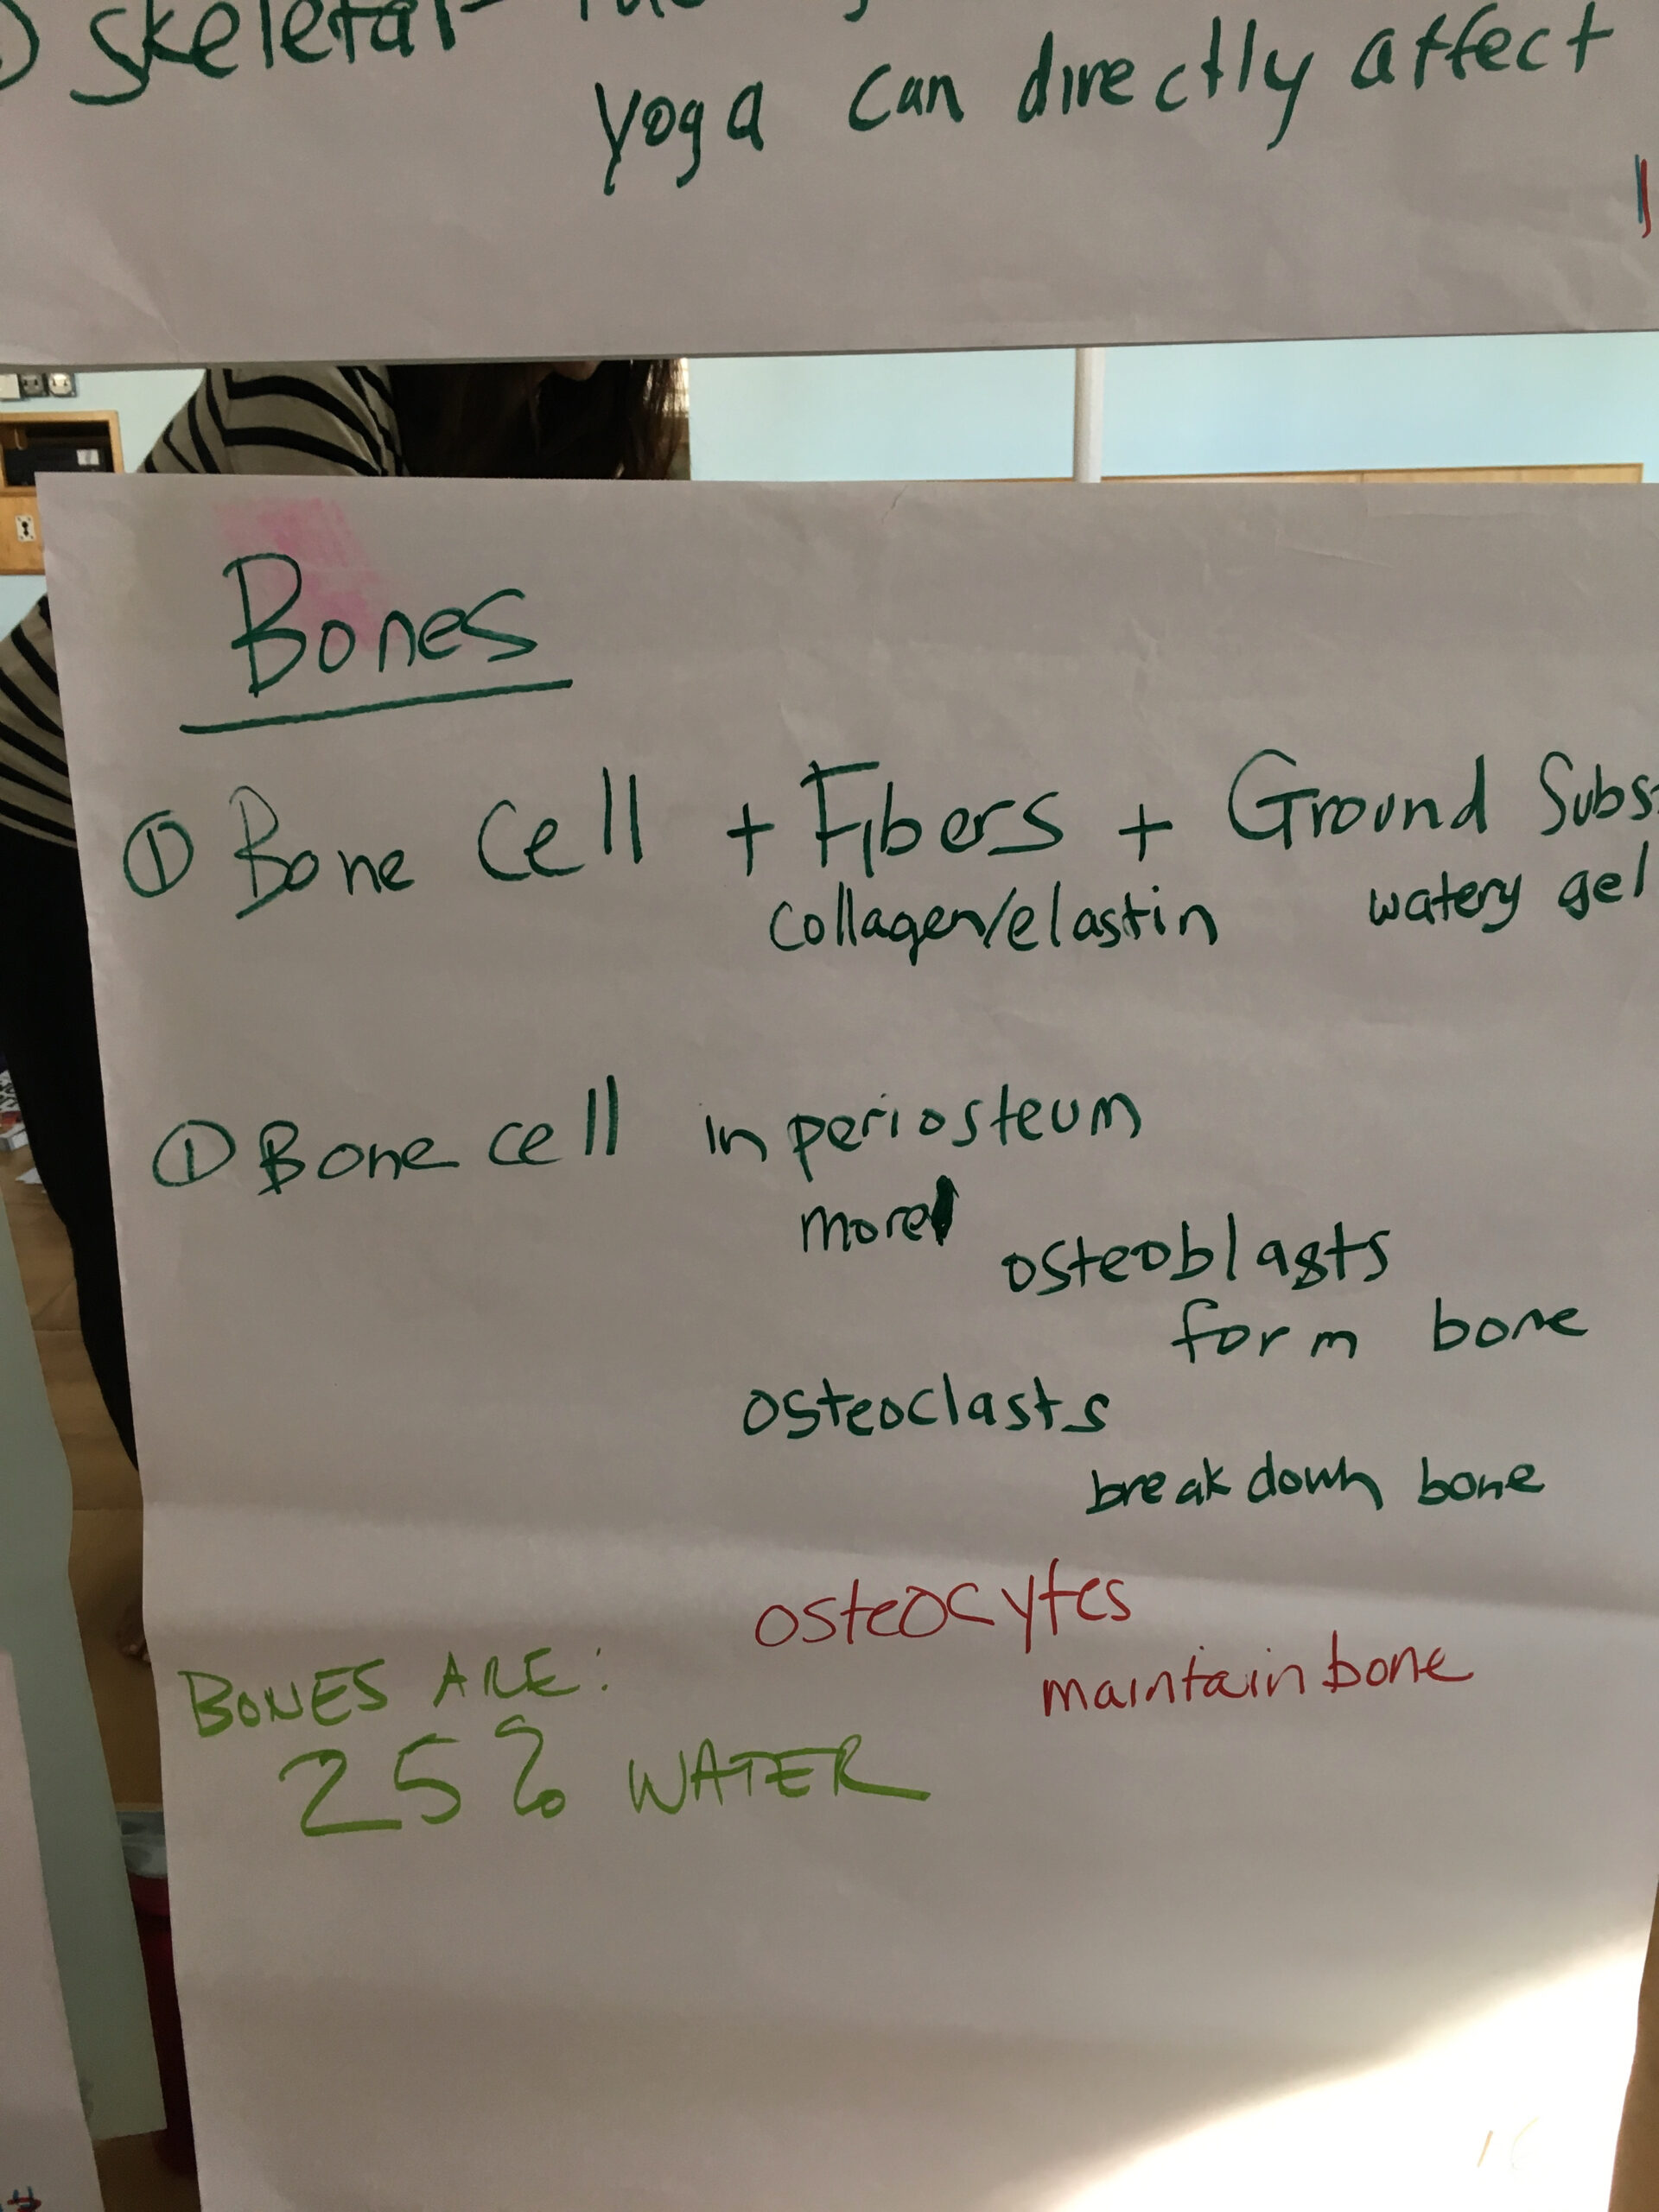 skeletal -
yoga can directly affect
Bones
① Bone Cell + Fibers + Ground Subs
collagen/elastin watery gel
① Bone cell in periosteum
more
osteoblasts
form bone
osteoclasts
break down bone
osteocytes
maintain bone
BONES ARE:
25% WATER